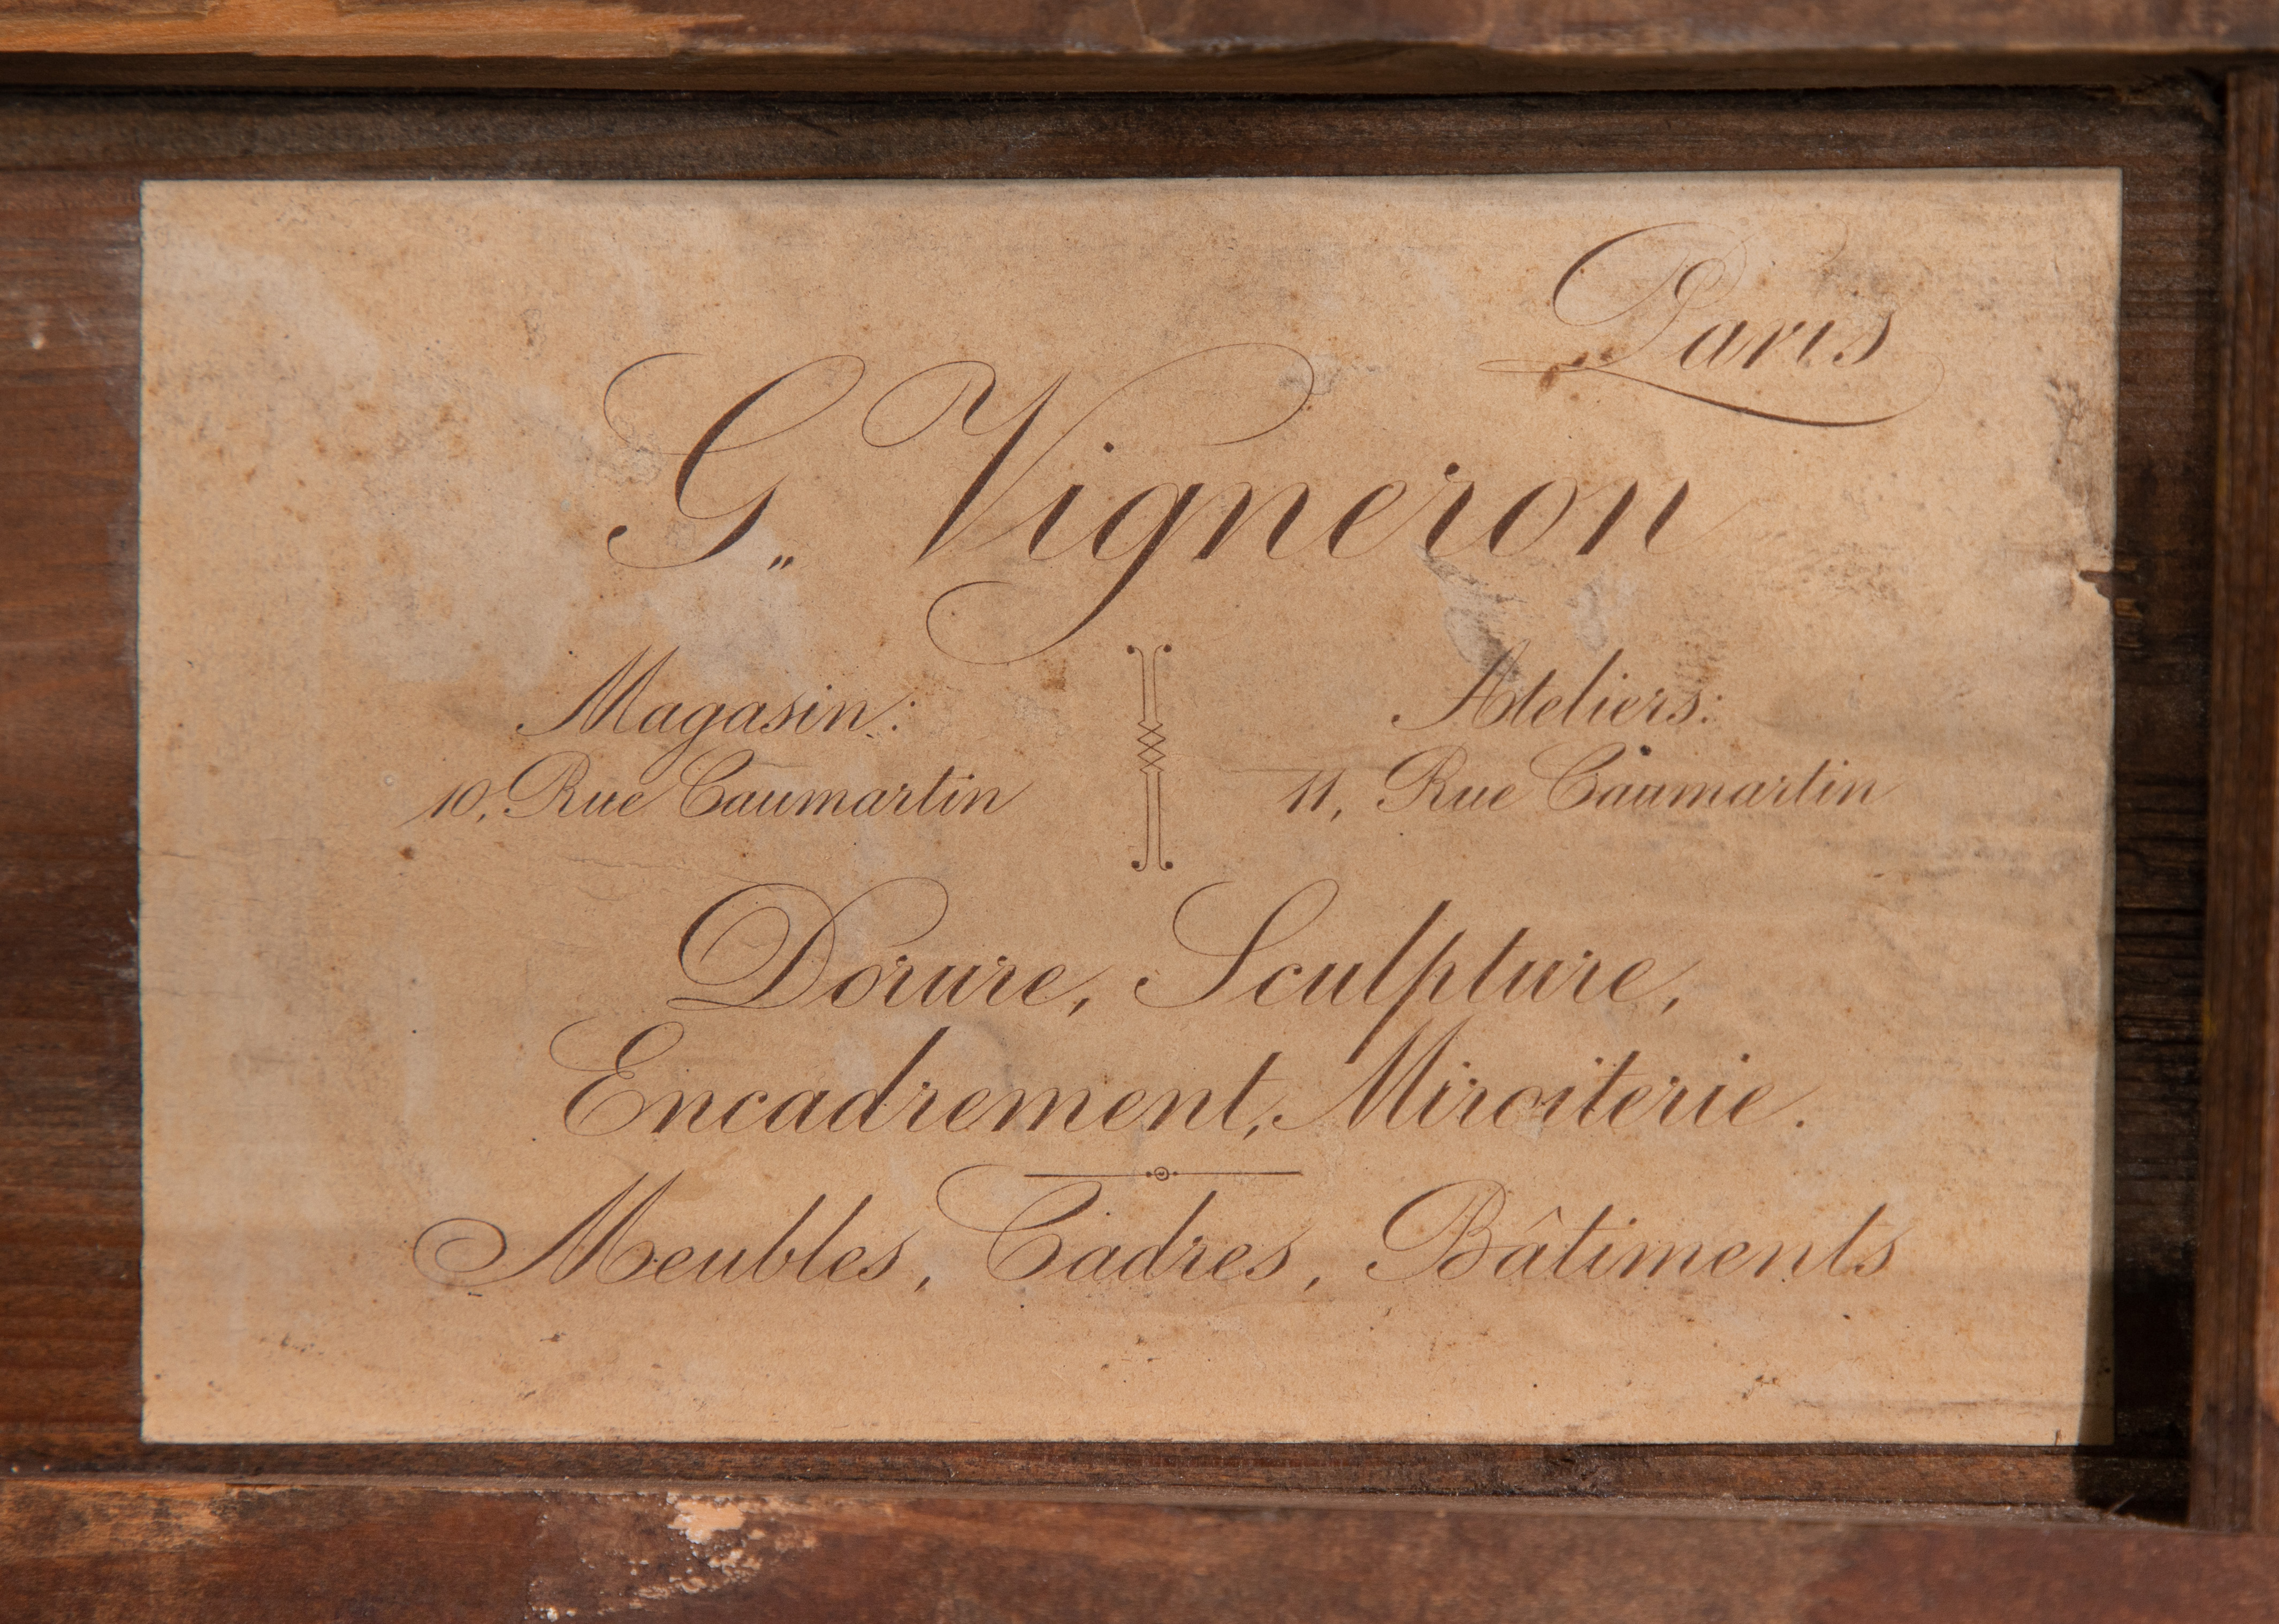 Paris
G„ Vigneron
Magasin:
10, Rue Caumartin
Ateliers:
11, Rue Caumartin
Dorure, Sculpture,
Encadrement, Miroiterie.
Meubles, Cadres, Bâtiments